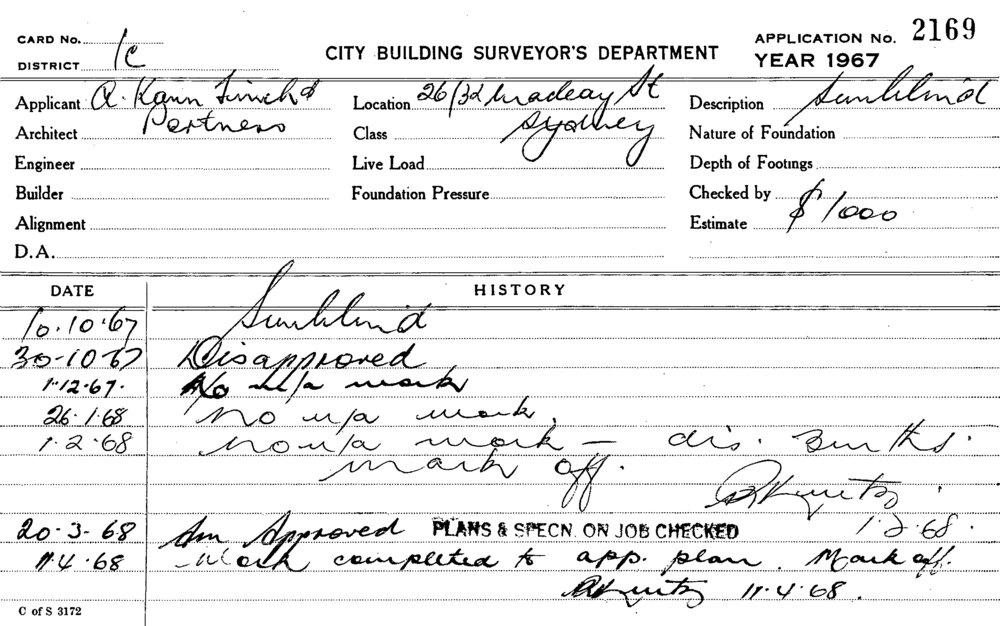 CARD No. 1C
DISTRICT
CITY BUILDING SURVEYOR'S DEPARTMENT
APPLICATION No. 2169
YEAR 1967
Applicant R. Kann Finch & Partners
Location 26/32 St Sydney
Description Sunblind
Architect
Class
Nature of Foundation
Engineer
Live Load
Depth of Footings
Builder
Foundation Pressure
Checked by
Alignment
Estimate $1000
D.A.
DATE HISTORY
10.10.67 Sunblind
30-10-67 Disapproved
1.12.67. No u/a work
26.1.68 No u/a work.
1.2.68 No u/a work – dis. 3 mths.
mark off.
1.2.68.
20.3.68 Am Approved PLANS & SPECN. ON JOB CHECKED
11.4.68 Work completed to app. plan. Mark off.
11.4.68.
C of S 3172